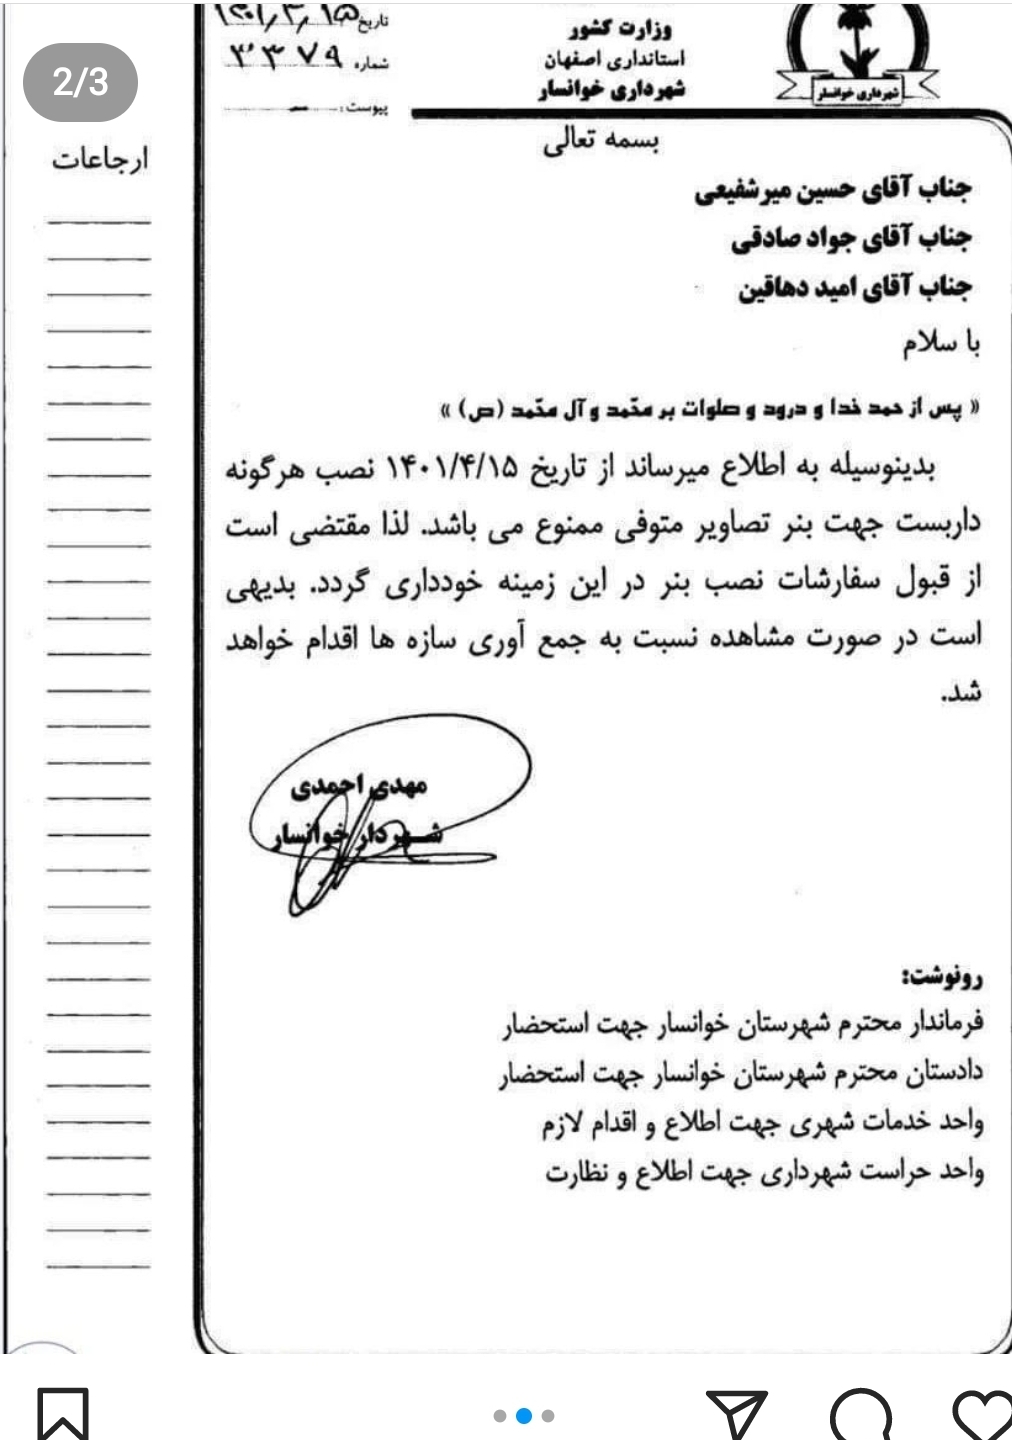 2/3
وزارت کشور
استانداری اصفهان
شهرداری خوانسار
شهرداری خوانسار
تاریخ ۱۴۰۱٫۳٫۱۵
شماره ۳۳۷۹
پیوست: ــ
ارجاعات
بسمه تعالی
جناب آقای حسین میرشفیعی
جناب آقای جواد صادقی
جناب آقای امید دهاقین
با سلام
« پس از حمد خدا و درود و صلوات بر محّمد و آل محّمد (ص) »
بدینوسیله به اطلاع میرساند از تاریخ ۱۴۰۱/۴/۱۵ نصب هرگونه
داربست جهت بنر تصاویر متوفی ممنوع می باشد. لذا مقتضی است
از قبول سفارشات نصب بنر در این زمینه خودداری گردد. بدیهی
است در صورت مشاهده نسبت به جمع آوری سازه ها اقدام خواهد
شد.
مهدی احمدی
شهردار خوانسار
رونوشت:
فرماندار محترم شهرستان خوانسار جهت استحضار
دادستان محترم شهرستان خوانسار جهت استحضار
واحد خدمات شهری جهت اطلاع و اقدام لازم
واحد حراست شهرداری جهت اطلاع و نظارت